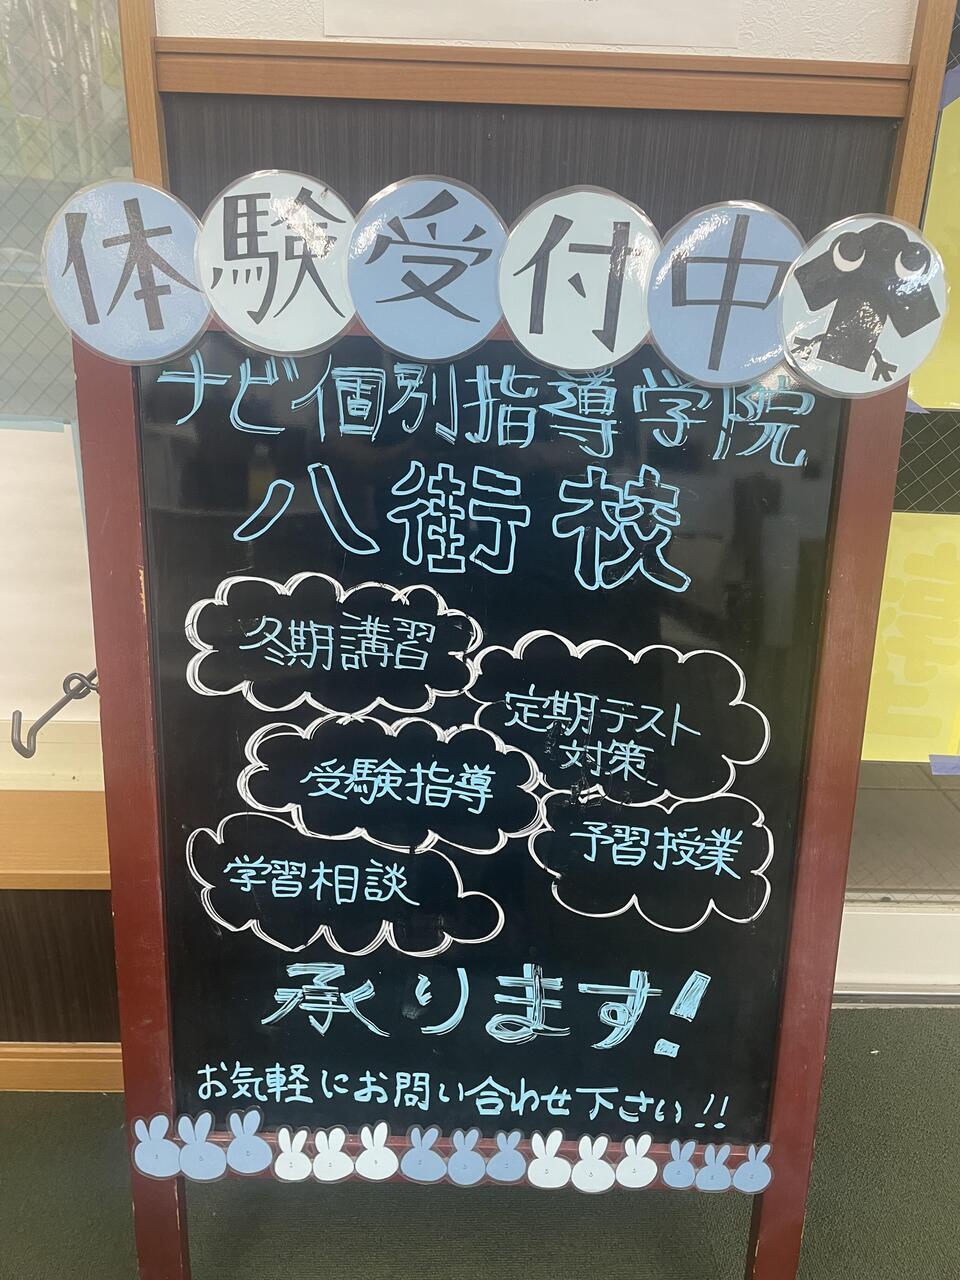 体験受付中
ナビ個別指導学院
八街校
冬期講習
定期テスト
対策
受験指導
予習授業
学習相談
承ります!
お気軽にお問い合わせ下さい!!